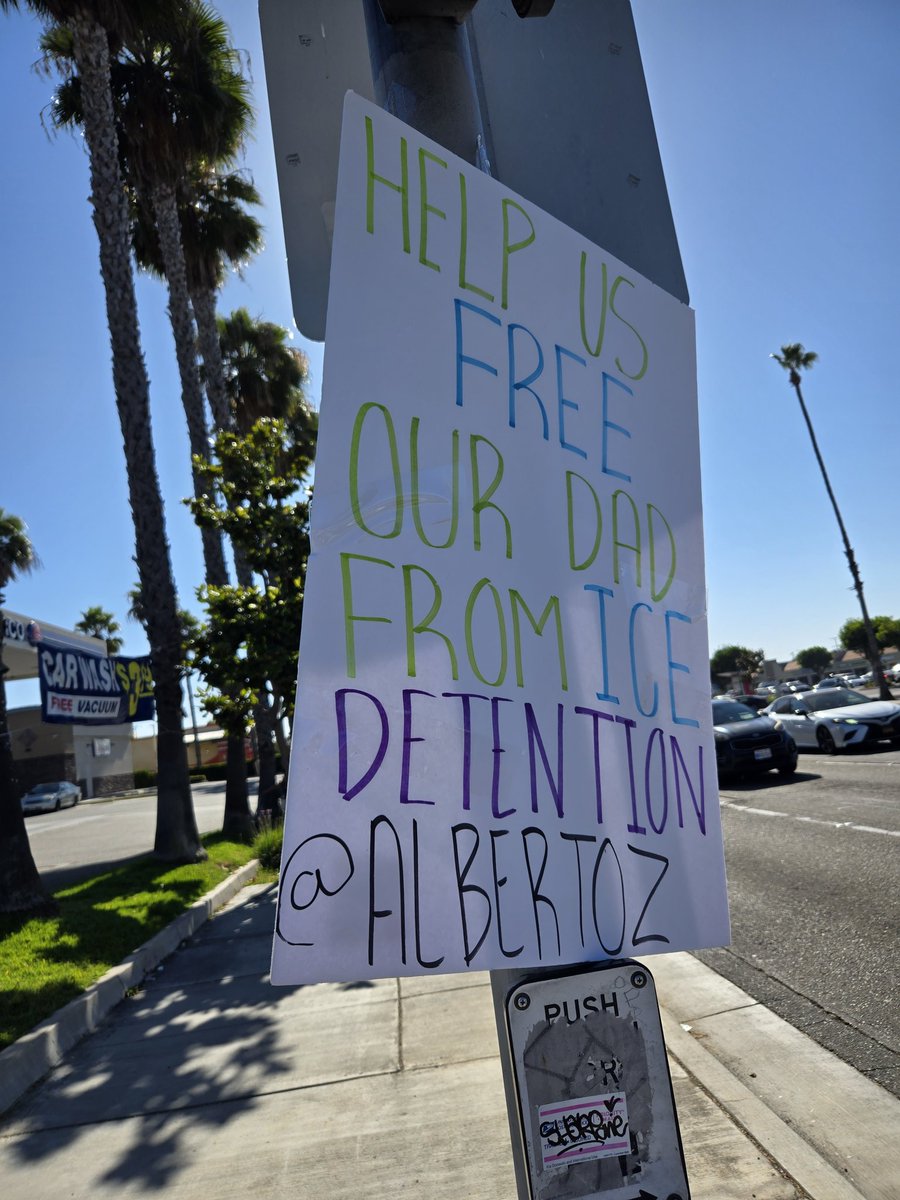 HELP US
FREE
OUR DAD
FROM ICE
DETENTION
@ALBERTOZ
CAR WASH $3
FREE VACUUM
PUSH